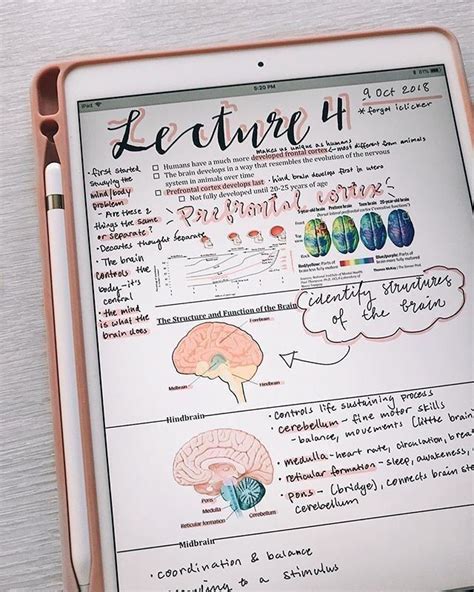 iPad
5:20 PM
81%
Lecture 4
9 Oct 2018
* forgot iclicker
makes us unique as humans
Humans have a much more developed frontal cortex ← most different from animals
The brain develops in a way that resembles the evolution of the nervous
system in animals over time
Prefrontal cortex develops last • hind brain develops first in utero
Not fully developed until 20-25 years of age
• first started
studying the
mind/body
problem
- Are these 2
things the same
or separate?
• Decartes thought separate
• The brain
controls the
body - it's
central
• the mind
is what the
brain does
Prefrontal cortex
5-year-old brain Preteen brain Teen brain 20-year-old brain
Red/yellow: Parts of
brain less fully mature
Blue/purple: Parts of
brain more fully matured
identify structures
of the brain
The Structure and Function of the Brain
Forebrain
Midbrain
Hindbrain
Hindbrain
• Controls life sustaining process
• cerebellum - fine motor skills
- balance, movements (little brain
• medulla - heart rate, circulation, brea
• reticular formation - sleep, awareness,
• pons - (bridge), connects brain ste
cerebellum
Pons
Medulla
Reticular formation
Cerebellum
Midbrain
• coordination & balance
to a stimulus